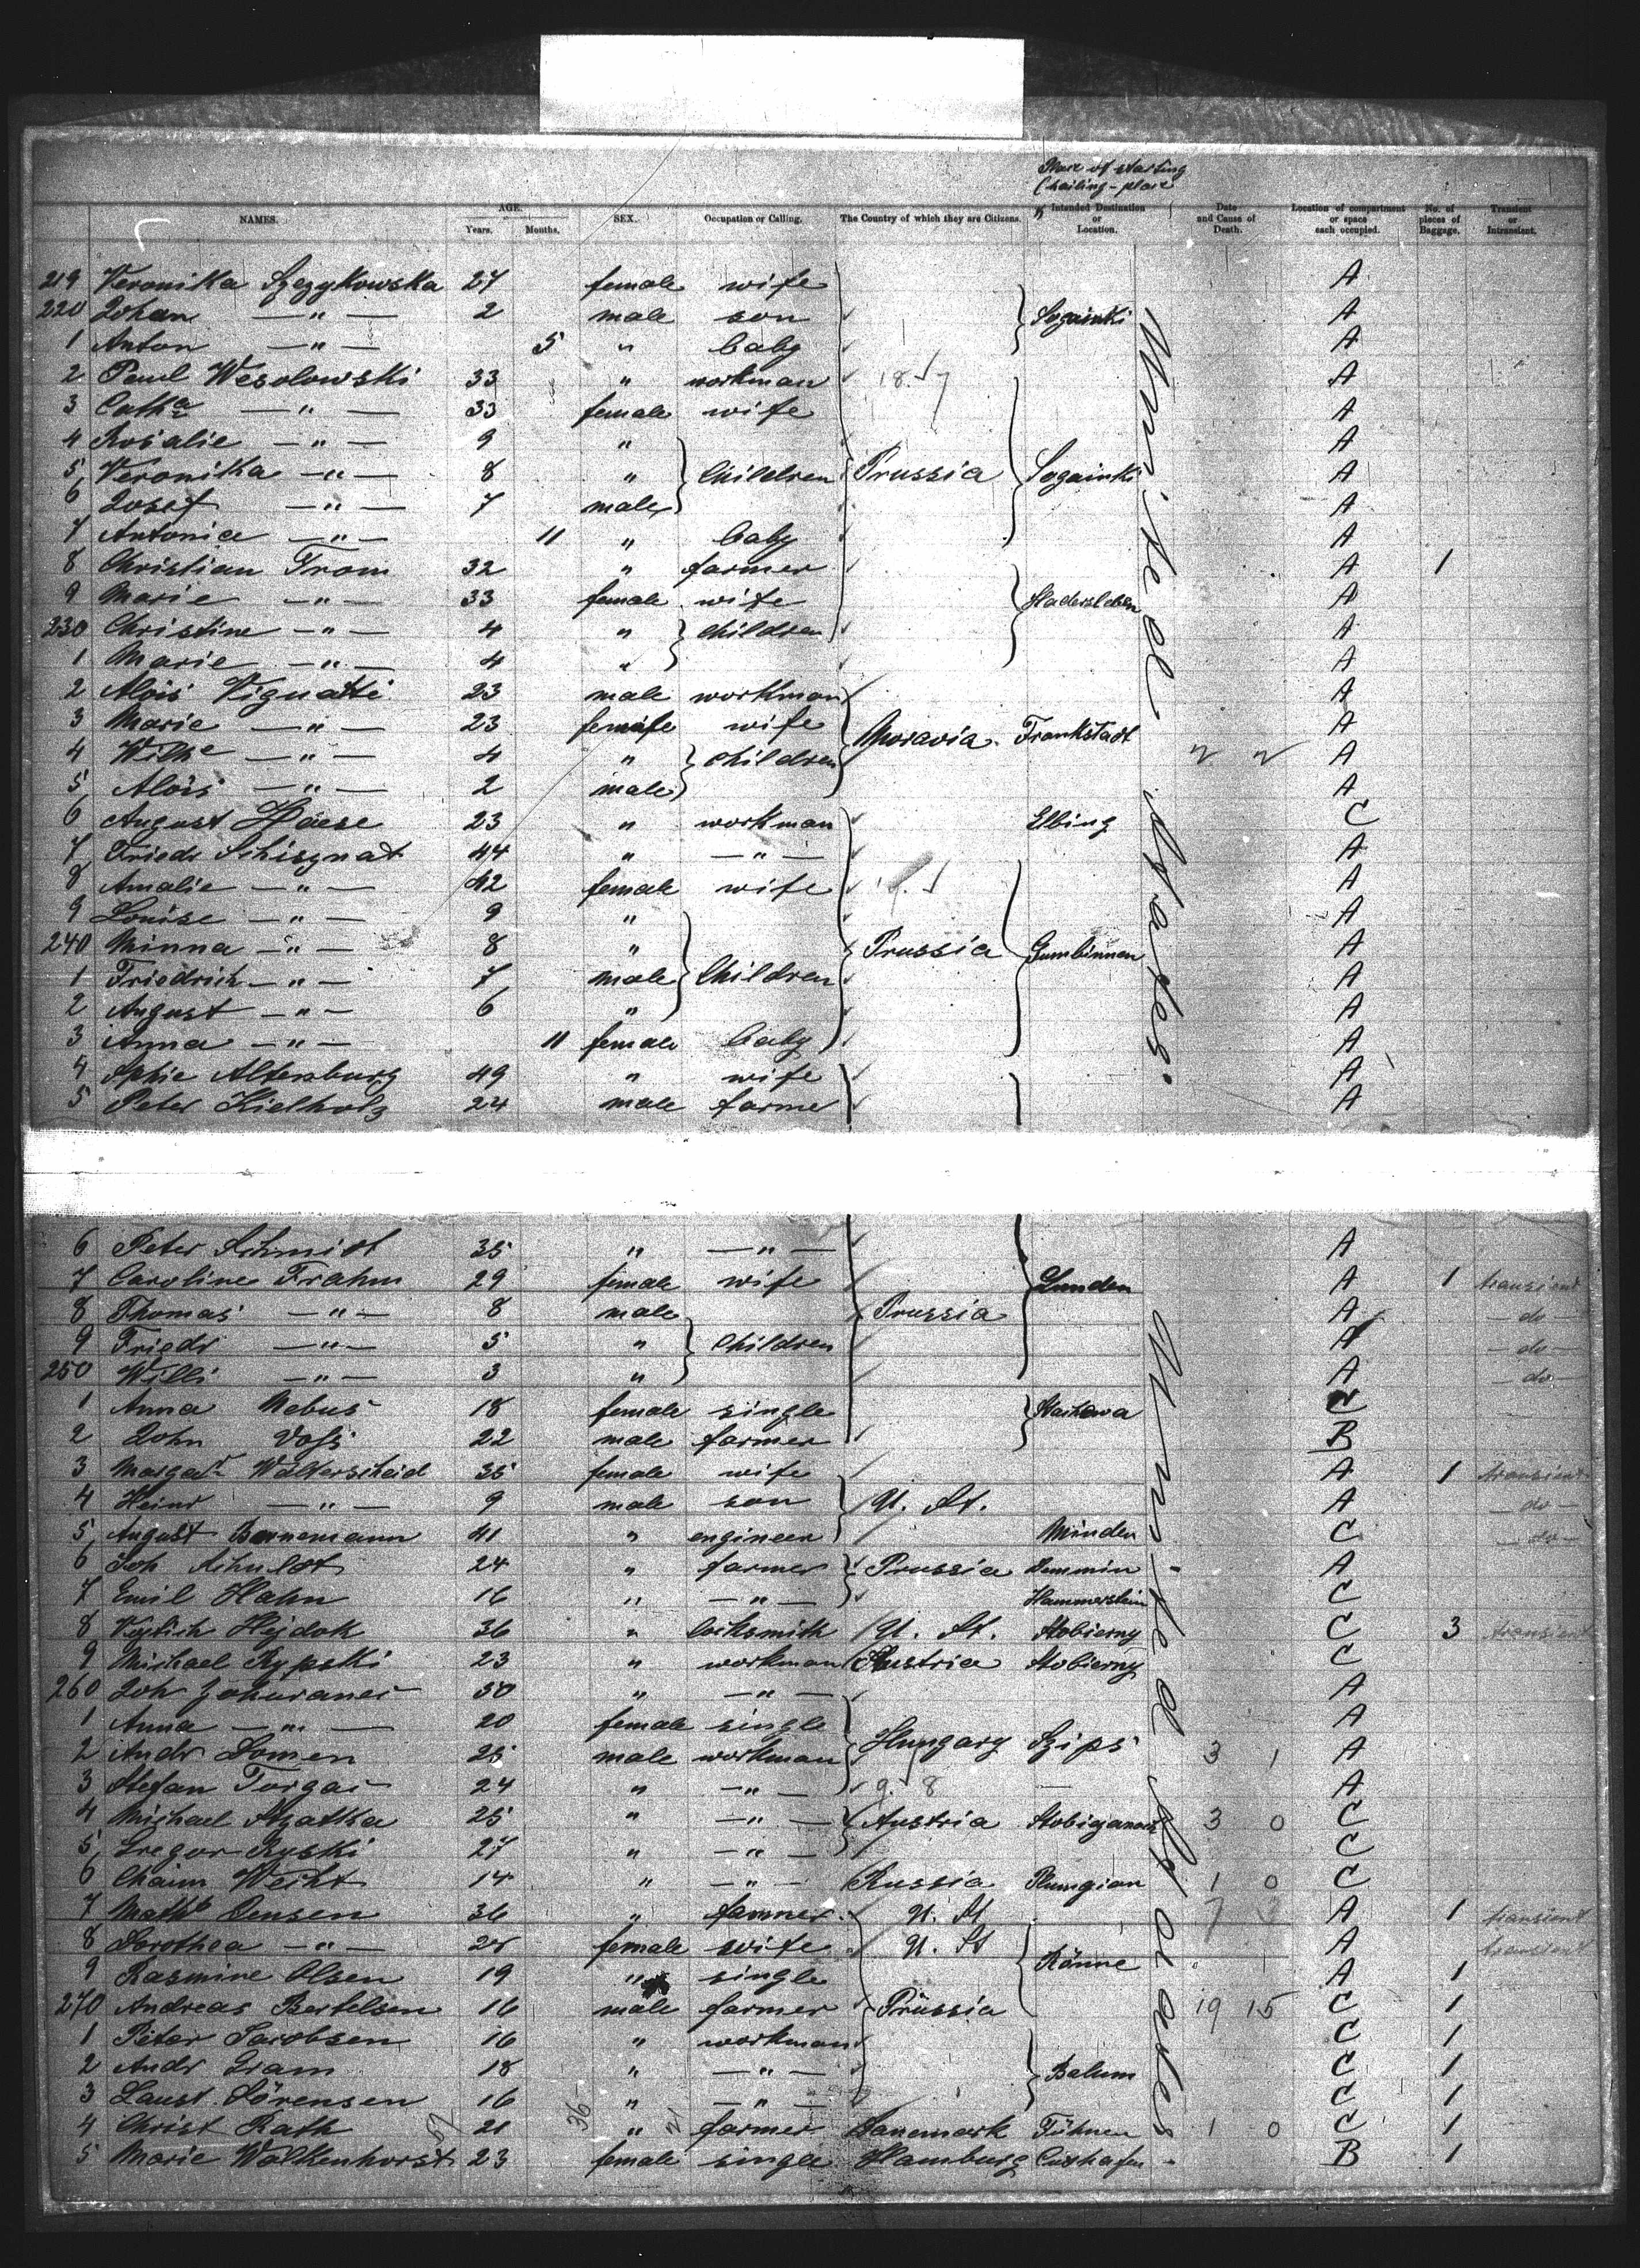 Place of starting
(hailing-place
NAMES. AGE. Years. Months. SEX. Occupation or Calling. The Country of which they are Citizens. Intended Destination or Location. Date and Cause of Death. Location of compartment or space each occupied. No. of pieces of Baggage. Transient or Intransient.
219 Veronika Szczykowska 27 female wife A
220 Johan —"— 2 male son A
1 Anton —"— 5 " baby A
2 Paul Wesolowski 33 " workman A
3 Cathe —"— 33 female wife A
4 Rosalie —"— 9 " A
5 Veronika —"— 8 " Children Prussia Sogainki A
6 Josef —"— 7 male A
7 Antonie —"— 11 " baby A
8 Christian From 32 " farmer A 1
9 Marie —"— 33 female wife Hadersleben A
230 Christine —"— 4 " children A
1 Marie —"— 4 " A
2 Alois Viguatti 23 male workman A
3 Marie —"— 23 female wife Moravia Frankstadt A
4 Wilhe —"— 4 " children A
5 Alois —"— 2 male A
6 August Haese 23 " workman Elbing C
7 Friedr Schisgnat 44 " —"— A
8 Amalie —"— 42 female wife A
9 Louise —"— 9 " A
240 Minna —"— 8 " Prussia Gumbinnen A
1 Friedrich —"— 7 male Children A
2 August —"— 6 " A
3 Anna —"— 11 female baby A
4 Sophie Altenburg 49 " wife A
5 Peter Kielholz 24 male farmer A
United States.
6 Peter Schmidt 35 " —"— A
7 Caroline Frahm 29 female wife Lunden A 1 transient
8 Thomas —"— 8 male Prussia A —do—
9 Friedr —"— 5 " Children A —do—
250 Willi —"— 3 " A —do—
1 Anna Mebus 18 female single C
2 John Voß 22 male farmer B
3 Margat Walterscheid 35 female wife A 1 transient
4 Heinr —"— 9 male son U. St. A —do—
5 August Bornemann 41 " engineer Minden C —do—
6 Joh Schuldt 24 " farmer Prussia Demmin A
7 Emil Hahn 16 " —"— Hammerstein C
8 Hejdok 36 " locksmith U. St. Stobierny C 3 transient
9 Michael Rypski 23 " workman Austria Stobierny C
260 Joh 30 " —"— A
1 Anna —"— 20 female single A
2 Andr Somen 25 male workman Hungary Szips 3 1 A
3 Stefan Torgai 24 " —"— A
4 Michael Agatha 25 " —"— Austria 3 0 C
5 Gregor Ryski 27 " —"— C
6 Chaim Weiht 14 " —"— Russia Plumgian 1 0 C
7 Mathe Jensen 36 " farmer U. St A 1 transient
8 Dorothea —"— 28 female wife U. St A transient
9 Rasmine Olsen 19 " single Rönne A 1
270 Andreas Bertelsen 16 male farmer Prussia 19 15 C 1
1 Peter Jacobsen 16 " workman C 1
2 Andr Gram 18 " —"— Balum C 1
3 Laust Sörensen 16 " —"— C 1
4 Christ Rath 21 " farmer Danemark Fühnen 1 0 C 1
5 Marie Walkenhorst 23 female single Hamburg Cuxhafen B 1
United States